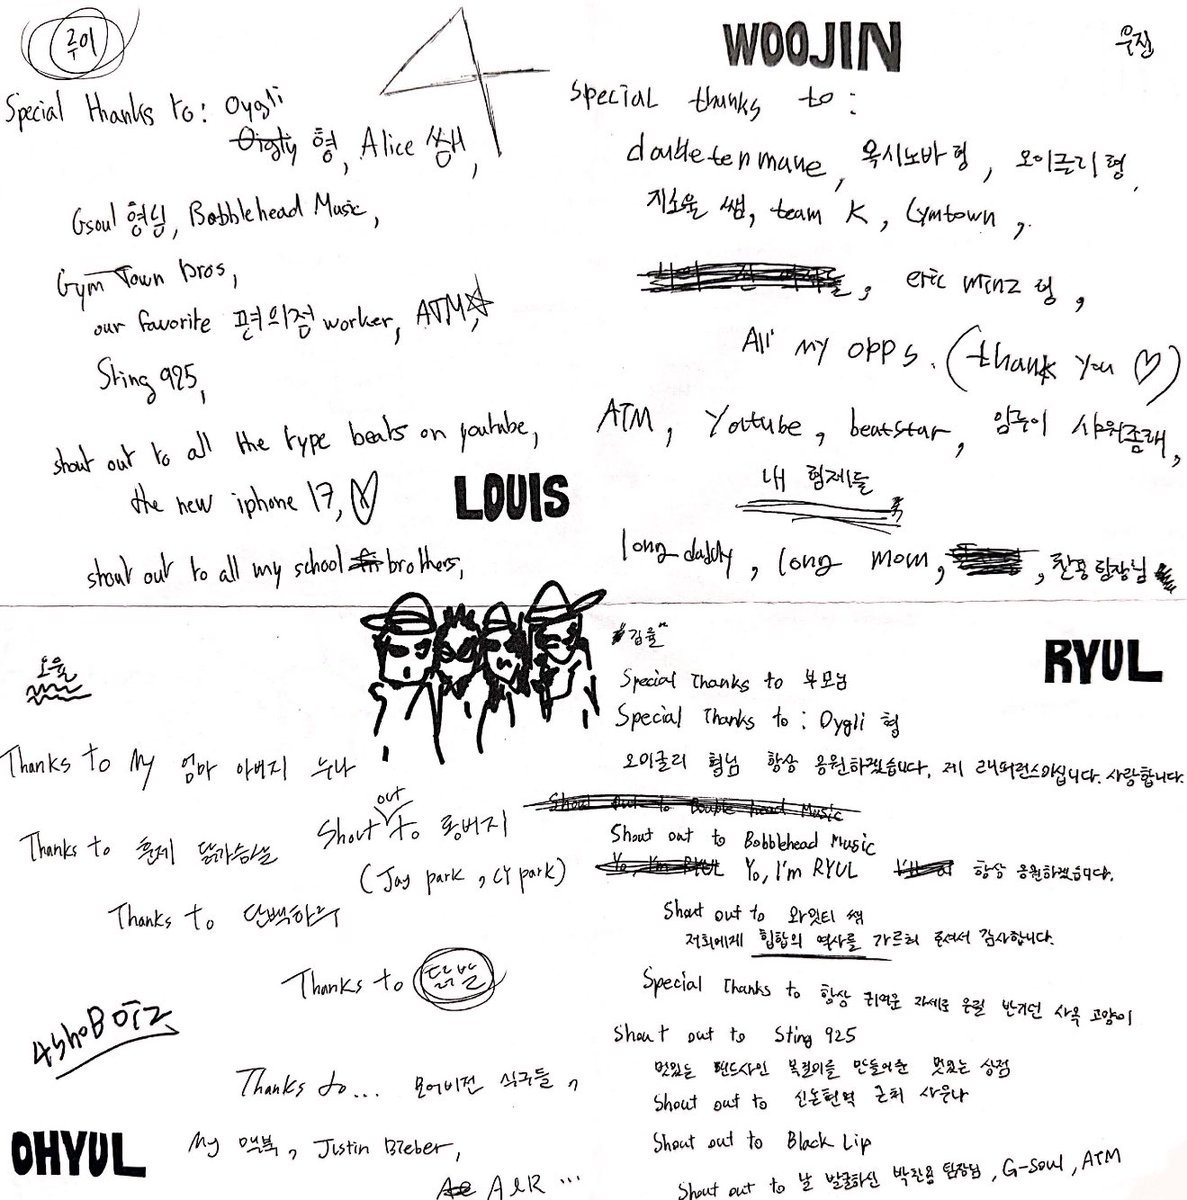 루이
Special thanks to: Oygli
형, Alice 쌤,
Gsoul 형님, Bobblehead Music,
Gym Town bros,
our favorite 편의점 worker, ATM,
Sting 925,
shout out to all the type beats on youtube,
the new iphone 17,
LOUIS
shout out to all my school brothers,
WOOJIN
우진
special thanks to:
doubletenmane, 옥시노바 형, 오이글리 형,
지소울 쌤, team K, Gymtown,
, eric minz 형,
All my opps. (thank you ♡)
ATM, Youtube, beatstar, 임루이 샤워좀해,
내 형제들
long daddy, long mom, , 찬용 팀장님
오율
Thanks to My 엄마 아버지 누나
Thanks to 훈제 닭가슴살
Shout out to 롱버지
(Jay park, CY park)
Thanks to 단백하루
Thanks to 닭발
4ShoBoiz
Thanks to... 모어비전 식구들,
OHYUL
My 맥북, Justin Bieber,
AER ...
"김율"
RYUL
Special Thanks to 부모님
Special Thanks to: Oygli 형
오이글리 형님 항상 응원하겠습니다. 제 레퍼런스이십니다. 사랑합니다.
Shout out to Bobblehead Music
Yo, I'm RYUL 항상 응원하겠습니다.
Shout out to 와잇티 쌤
저희에게 힙합의 역사를 가르쳐 주셔서 감사합니다.
Special Thanks to 항상 귀여운 자세로 우릴 반기던 사옥 고양이
Shout out to Sting 925
멋있는 핸드사인 목걸이를 만들어준 멋있는 상점
Shout out to 신논현역 근처 사우나
Shout out to Black Lip
Shout out to 날 발굴하신 박찬용 팀장님, G-Soul, ATM